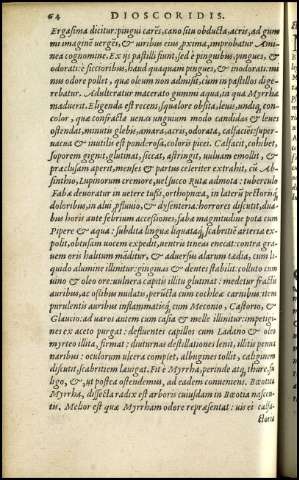 64 DIOSCORIDIS.
Ergasima dicitur: pingui carēs, cano situ obducta, acris, ad gum
mi imaginē vergēs, & viribus eius pxima, improbatur Ami-
nea cognomine. Ex ijs pastilli fiunt, sed è pinguibus, pingues, &
odorati: è siccioribus, haud quaquam pingues, & inodorati: mi
nus odore pollet, qua oleum non admisit, cùm in pastillos dige-
rebatur. Adulteratur macerato gummi aqua, in qua Myrrha
maduerit. Eligenda est recens, squalore obsita, leuis, undiq con-
color, quæ confracta uenas unguium modo candidas & leues
ostendat, minutis glebis, amara, acris, odorata, calfaciēs: super-
uacua & inutilis est ponderosa, coloris picei. Calfacit, cohibet,
soporem gignit, glutinat, siccat, astringit, vuluam emollit, &
præclusam aperit, menses & partus celeriter extrahit, cū Ab-
sinthio, Lupinorum cremore, uel succo Rutæ admota: tuberculo
Fabæ deuoratur in uetere tussi, orthopnœa, in laterū pectorisq
doloribus, in alui pfluuio, & dysenteria: horrores discutit, dua-
bus horis ante febrium accessiones, fabæ magnitudine pota cum
Pipere & aqua: subdita lingua liquataq, scabritiē arteria ex-
polit, obtusam uocem expedit, uentris tineas enecat: contra gra-
uem oris halitum māditur, & aduersus alarum tædia, cum li-
quido alumine illinitur: gingiuas & dentes stabilit, collutu cum
uino & oleo ore: uulnera capitis illitu glutinat: medetur fractis
auribus, ac ossibus nudatis, perūcta cum cochleæ carnibus: item
purulentis auribus inflammatisq, cum Meconio, Castoreo, &
Glaucio: ad uaros autem cum casia & melle illinitur: impetigi-
nes ex aceto purgat: defluentes capillos cum Ladano & oleo
myrteo illita, firmat: diuturnas destillationes lenit, illitis pennā
naribus: oculorum ulcera complet, albugines tollit, caliginem
discutit, scabritiem læuigat. Fit è Myrrha, perinde atq thure, fu
ligo, &, ut postea ostendemus, ad eadem conueniens. Bœotia
Myrrha, dissecta radix est arboris cuiusdam in Bœotia nascen-
tis. Melior est quæ Myrrham odore repræsentat: uis ei calfa-
ctoria